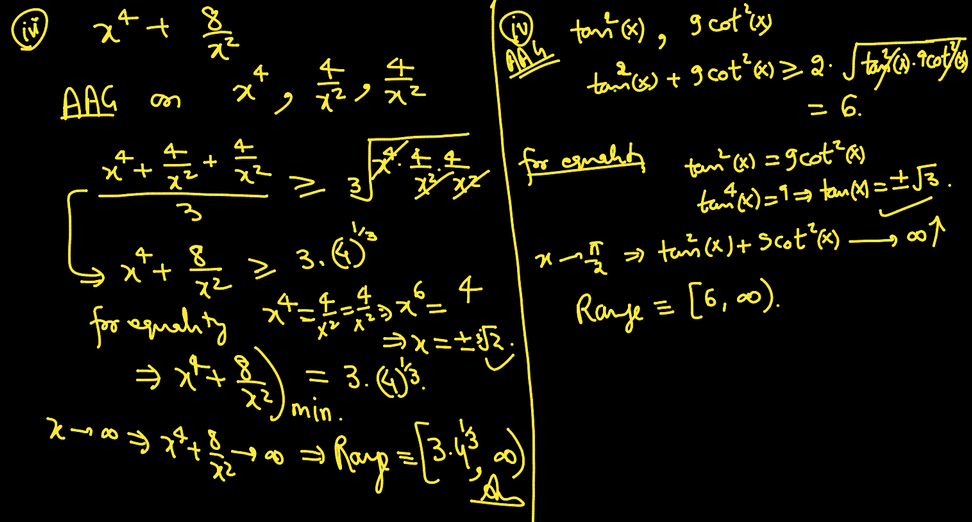 (iv) x⁴ + 8/x²
AAG on x⁴, 4/x², 4/x²
(x⁴ + 4/x² + 4/x²)/3 ≥ ∛(x⁴ · 4/x² · 4/x²)
⇒ x⁴ + 8/x² ≥ 3.(4)^(1/3)
for equality x⁴ = 4/x² = 4/x² ⇒ x⁶ = 4
⇒ x = ±∛2.
⇒ x⁴ + 8/x²)min. = 3.(4)^(1/3).
x → ∞ ⇒ x⁴ + 8/x² → ∞ ⇒ Range ≡ [3.4^(1/3), ∞)
Ans
(iv) tan²(x), 9cot²(x)
AAG
tan²(x) + 9cot²(x) ≥ 2·√(tan²(x)·9cot²(x))
= 6.
for equality tan²(x) = 9cot²(x)
tan⁴(x) = 9 ⇒ tan(x) = ±√3.
x → π/2 ⇒ tan²(x) + 9cot²(x) → ∞↑
Range ≡ [6, ∞).